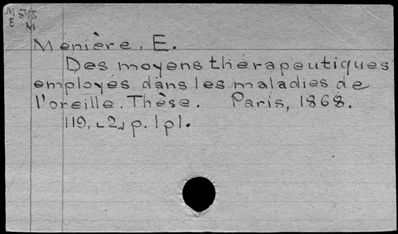 M 515
E M
Ménière, E.
Des moyens thérapeutiques
employés dans les maladies de
l'oreille. Thèse. Paris, 1868.
119, [2] p. 1 pl.